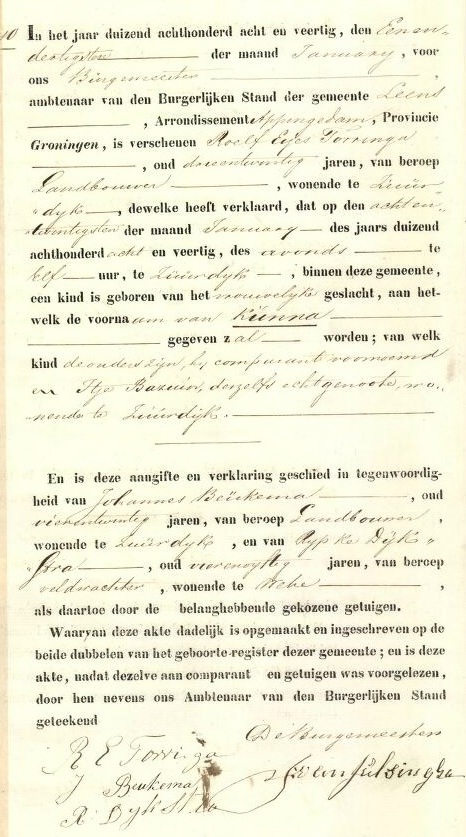 10
In het jaar duizend achthonderd acht en veertig, den Eenen-
dertigsten der maand January, voor
ons Burgemeester,
ambtenaar van den Burgerlijken Stand der gemeente Leens
, Arrondissement Appingedam, Provincie
Groningen, is verschenen Roelf Eyes Torringa
, oud drieentwintig jaren, van beroep
Landbouwer, wonende te Zuur-
dyk, dewelke heeft verklaard, dat op den acht en
twintigsten der maand January des jaars duizend
achthonderd acht en veertig, des avonds te
Elf uur, te Zuurdyk, binnen deze gemeente,
een kind is geboren van het vrouwelyk geslacht, aan het-
welk de voornaam van Kunna
gegeven zal worden; van welk
kind de ouders zyn, hy comparant voornoemd
en Itje Bazuin, deszelfs echtgenoote, wo-
nende te Zuurdyk.
En is deze aangifte en verklaring geschied in tegenwoordig-
heid van Johannes Beukema, oud
vierentwintig jaren, van beroep Landbouwer,
wonende te Zuurdyk, en van Rypke Dyk-
stra, oud vierenvyftig jaren, van beroep
veldwachter, wonende te Wehe,
als daartoe door de belanghebbende gekozene getuigen.
Waarvan deze akte dadelijk is opgemaakt en ingeschreven op de
beide dubbelen van het geboorte-register dezer gemeente; en is deze
akte, nadat dezelve aan comparant en getuigen was voorgelezen,
door hen nevens ons Ambtenaar van den Burgerlijken Stand
geteekend
De Burgemeester
R E Torringa
J Beukema
R Dykstra